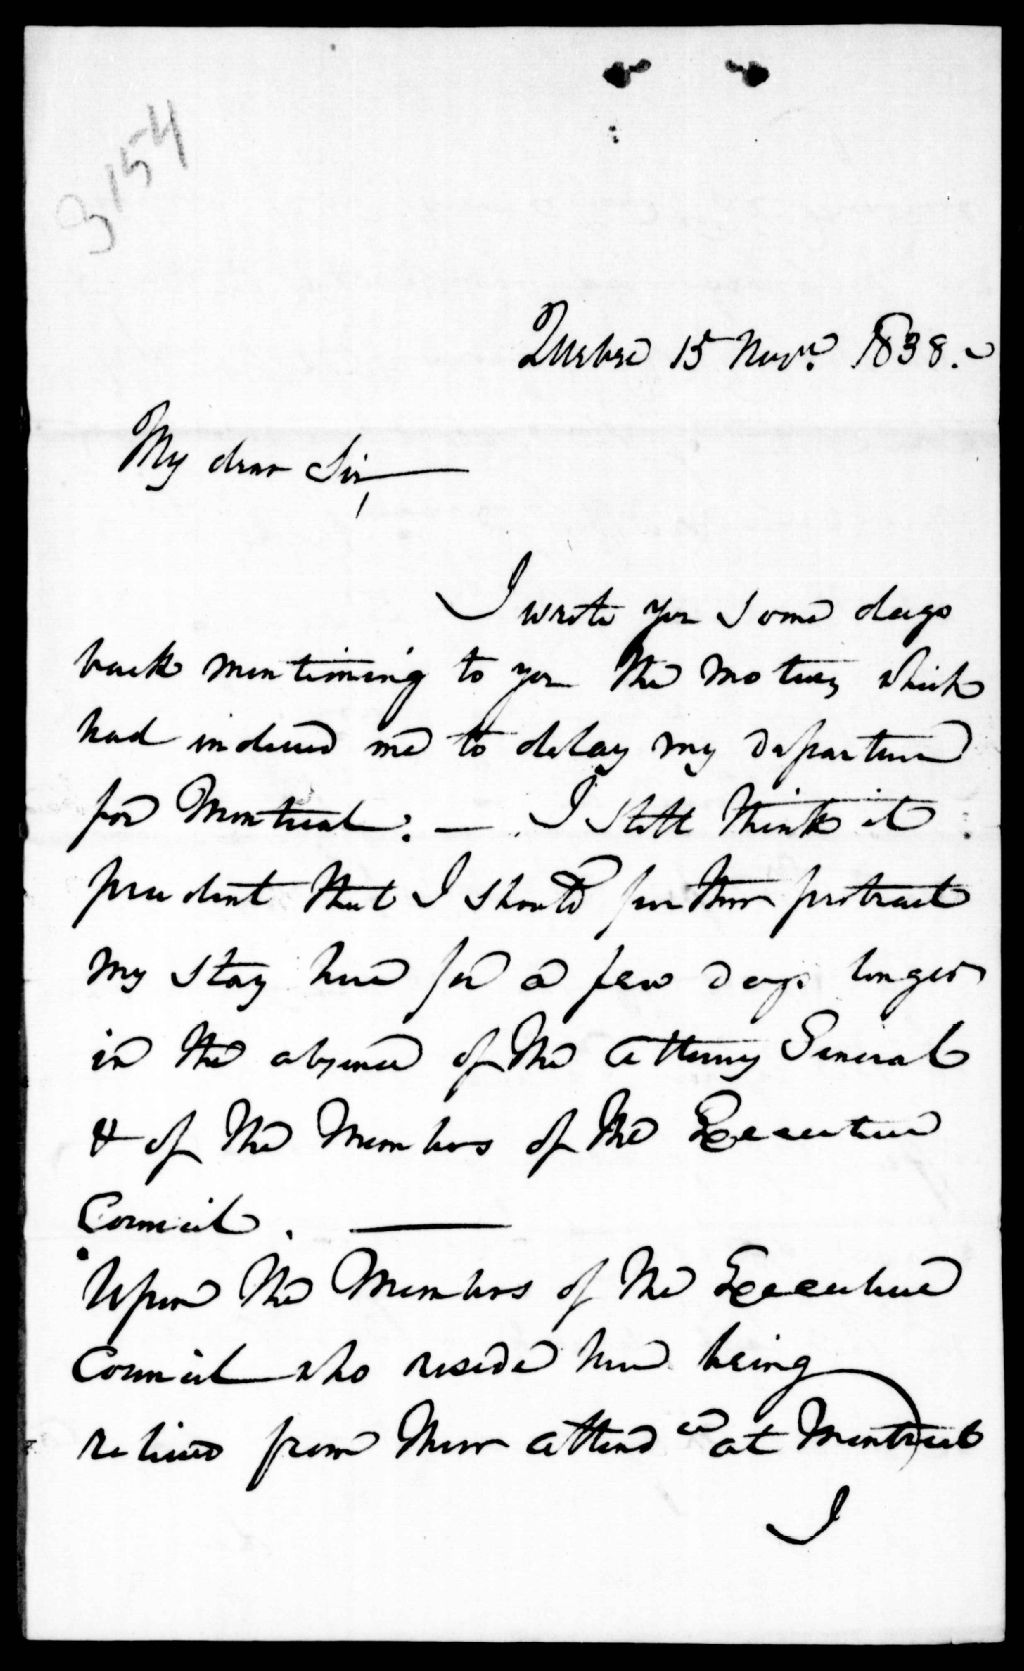 3154
Quebec 15 Novr. 1838.
My dear Sir,
I wrote you some days
back mentioning to you the motives which
had induced me to delay my departure
for Montreal. — I still think it
prudent that I should further protract
my stay here for a few days longer
in the absence of the Attorney General
& of the Members of the Executive
Council. —
Upon the Members of the Executive
Council who reside here being
relieved from their attendce at Montreal
I